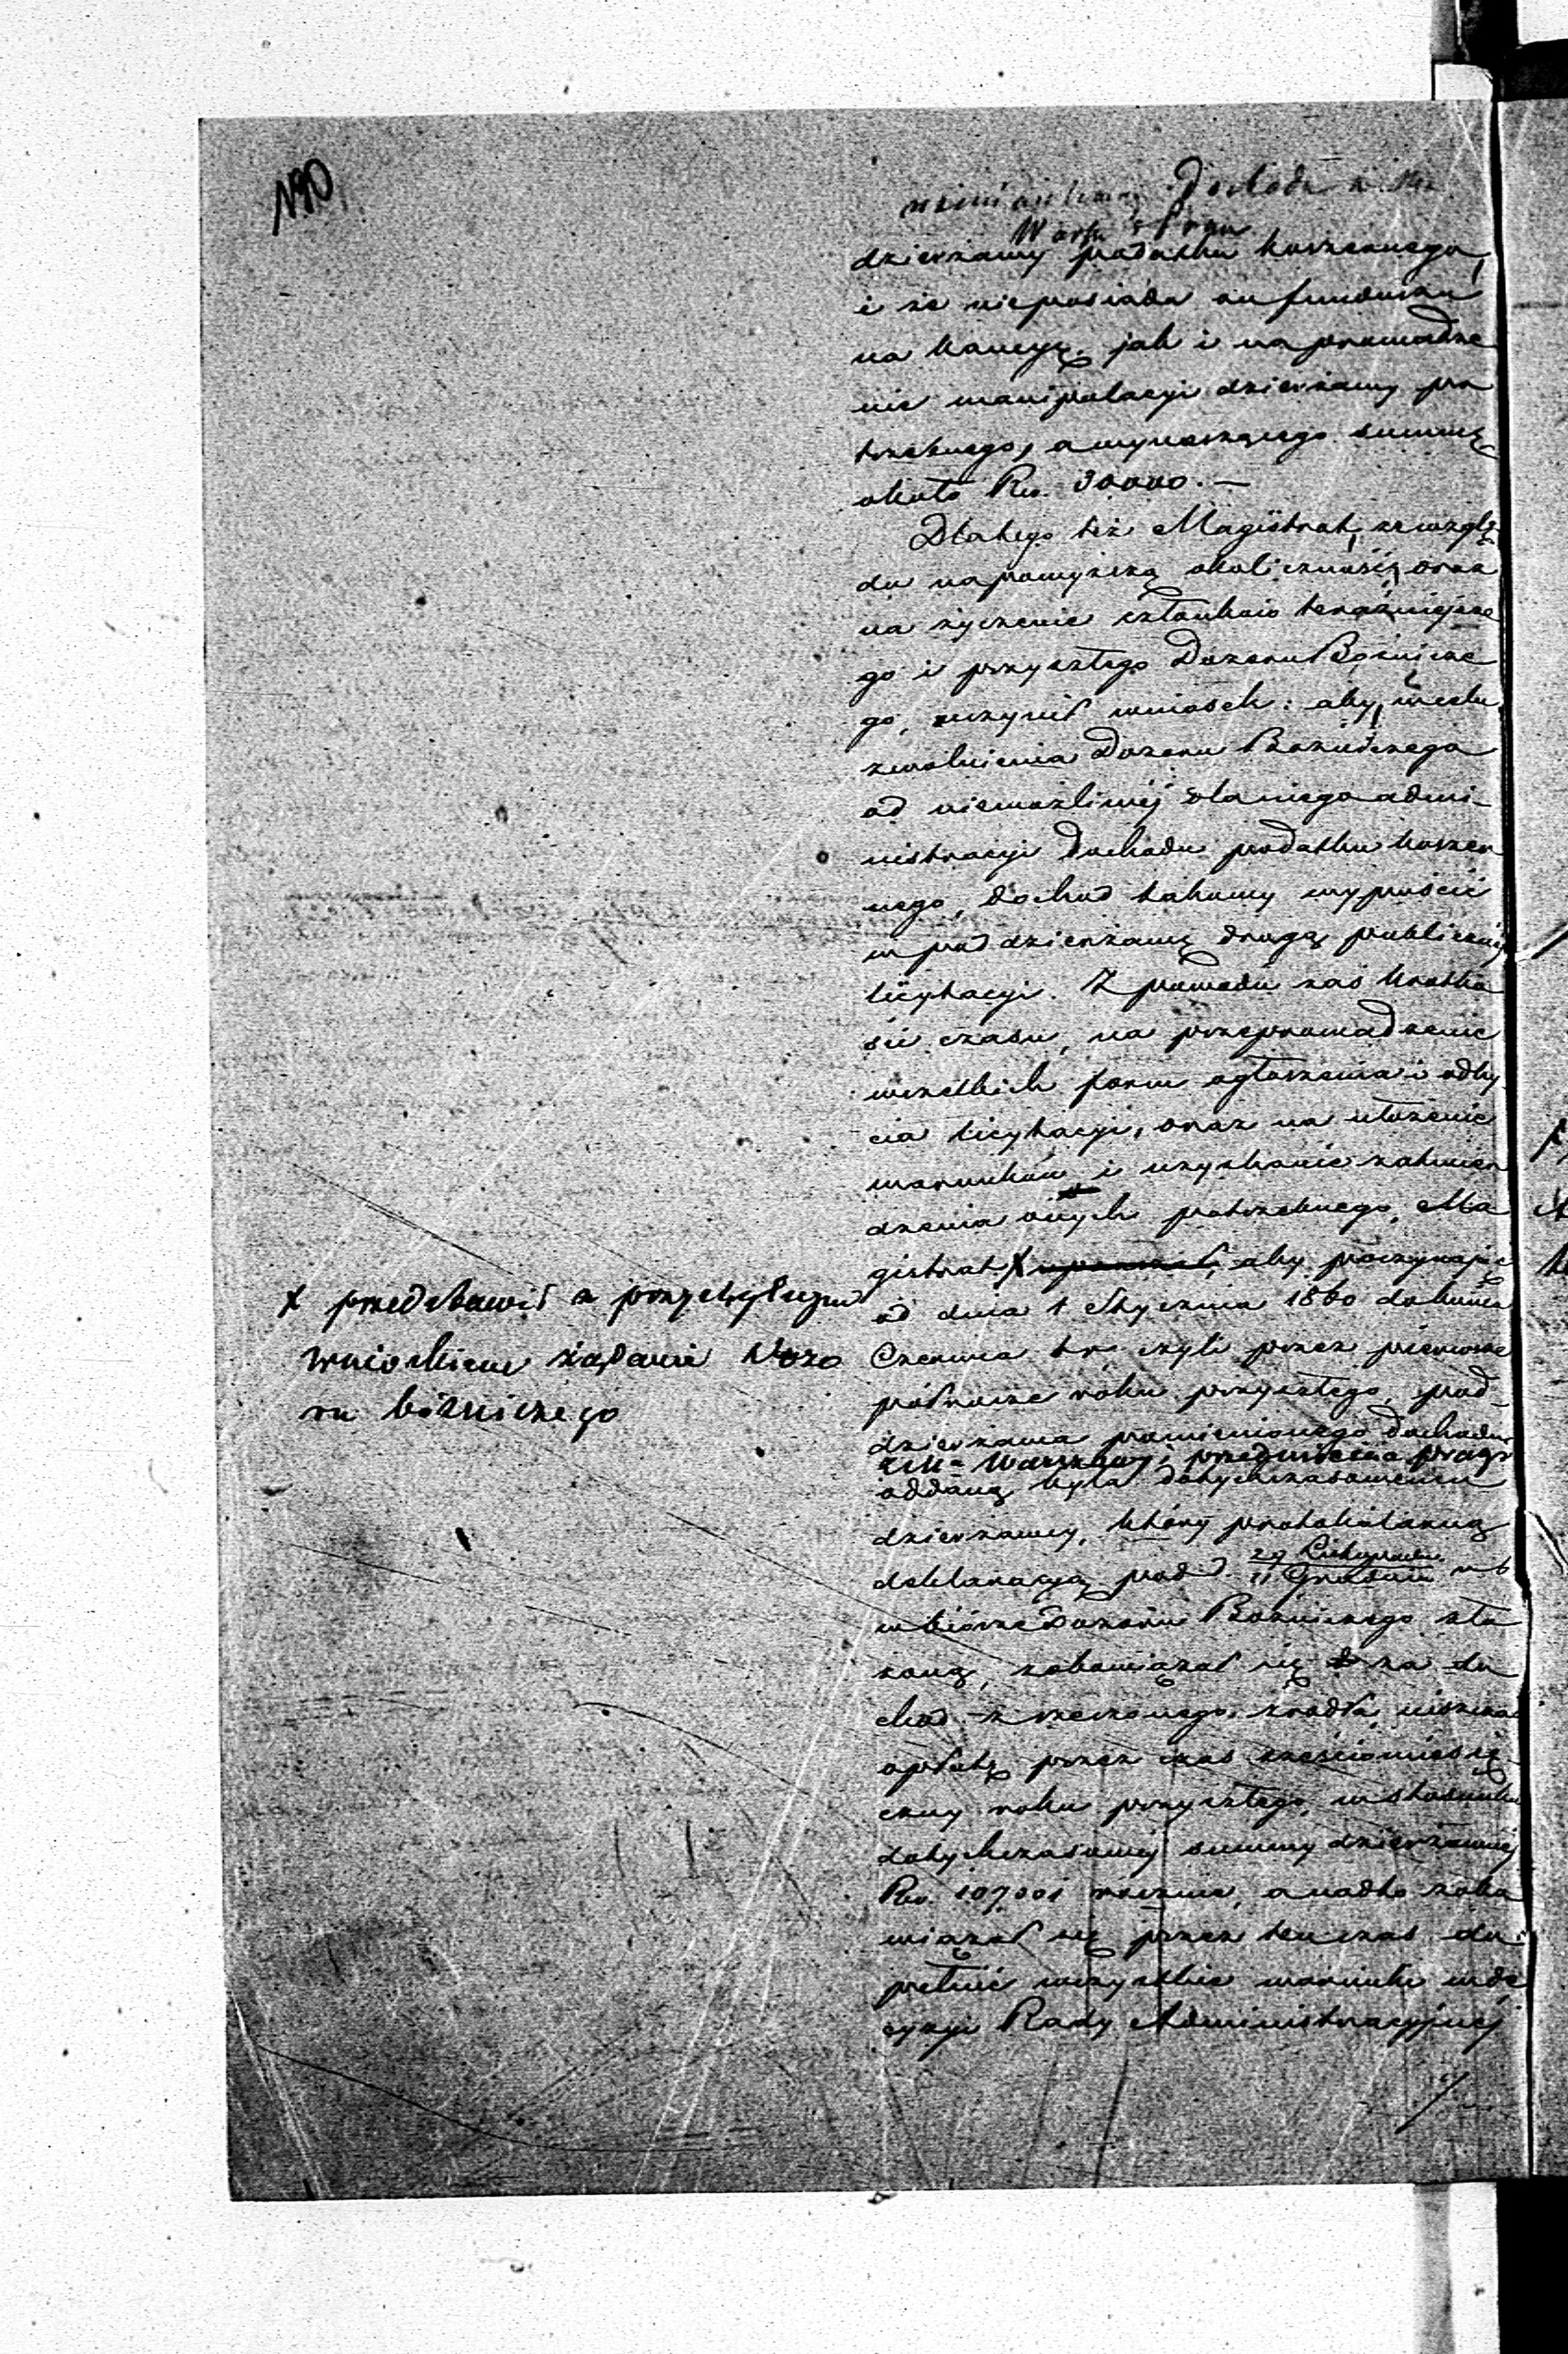 190
Dochodu z M.
Warsz i Pragi
dzierżawy podatku koszernego,
i że nieposiada ani funduszu
na kaucyę, jak i na prowadze
nie manipulacyi dzierżawy po
trzebnego, a wynoszącego summę
około Rs. 30000. —
Dlatego też Magistrat, ze wzglę
du na powyższą okoliczność, oraz
na życzenie członków teraźniejsze
go i przyszłego Dozoru Bożnicze
go, uczynił wniosek: aby, w celu
zwolnienia Dozoru Bożniczego
od niemożliwéj dla niego admi-
nistracyi dochodu podatku koszer
nego, dochód takowy wypuścić
w poddzierżawę drogą publicznéj
licytacyi. Z powodu zaś krótko
ści czasu, na przeprowadzenie
wszelkich form ogłoszenia i odby
cia licytacyi, oraz na ułożenie
warunków i uzyskanie zatwier
dzenia onych potrzebnego, Ma
gistrat X aby poczynając
X przedstawił z przychylnym
wnioskiem żądanie Dozo
ru bóżniczego
od dnia 1 Stycznia 1860 do końca
Czerwca t.r. czyli przez pierwsze
półrocze roku przyszłego, pod-
dzierżawa pomienionego dochodu
z M. Warszawy i przedmieścia Pragi
oddaną była dotychczasowemu
dzierżawcy, który protokólarną
deklaracyą pod d. 29 Listopada / 11 Grudnia rb
w biórze Dozoru Bożniczego zło
żoną, zobowiązał się za do
chód z rzeczonego źródła uiszczać
opłatę przez czas sześciomiesię
czny roku przyszłego, w stosunku
dotychczasowéj summy dzierżawnéj
Rs. 107001 rocznie, a nadto zobo
wiązał się przez ten czas do
pełnić wszystkie warunki w de
cyzyi Rady Administracyjnéj